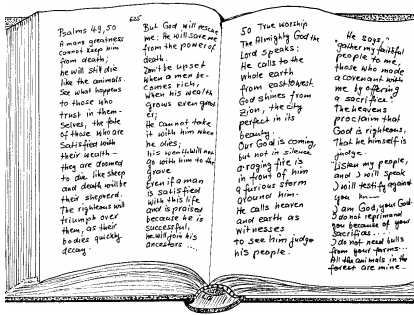 625
Psalms 49,50
A mans greatness
cannot keep him
from death;
he will still die
like the animals.
See what happens
to those who
trust in them-
selves, the fate
of those who are
satisfied with
their wealth -
they are doomed
to die like sheep
and death will be
their shepherd.
The righteous will
triumph over
them, as their
bodies quickly
decay.
But God will rescue
me; He will save me
from the power of
death.
Don't be upset
when a man be-
comes rich,
When his wealth
grows even great-
er;
He cannot take
it with him when
he dies;
His wealth will not
go with him to the
grave
Even if a man
is satisfied
with this life
and is praised
because he is
successful,
he will join his
ancestors ...
50 True worship
The Almighty God the
Lord speaks;
He calls to the
whole earth
from east to west.
God shines from
Zion, the city
perfect in its
beauty.
Our God is coming,
but not in silence
a raging fire is
in front of him
a furious storm
around him.
He calls heaven
and earth as
witnesses
to see him judge
his people.
He says,
"gather my faithful
people to me,
those who made
a covenant with
me by offering
a sacrifice."
The heavens
proclaim that
God is righteous,
That he himself is
judge.
"Listen my people,
and I will speak
I will testify against
you
I am God, your God.
I do not reprimand
you because of your
sacrifices....
I do not need bulls
from your farms...
All the animals in the
forest are mine..